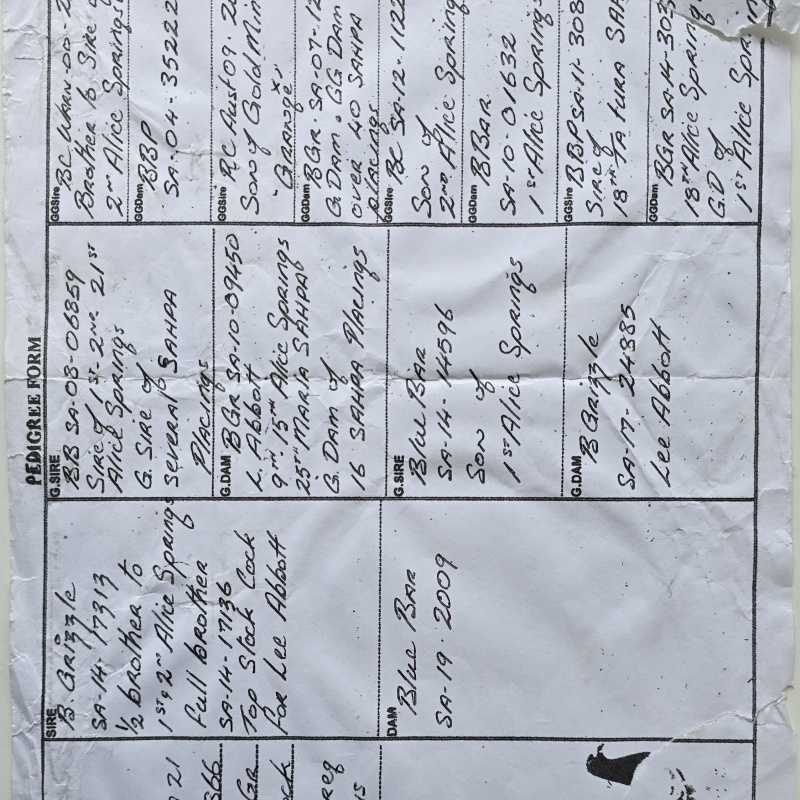 PEDIGREE FORM
21
366
GR
SIRE
B. Grizzle
SA-14-17313
1/2 brother to
1st & 2nd Alice Springs
full brother
SA-14-17136
Top Stock Cock
for Lee Abbott
DAM
Blue Bar
SA-19-2009
G.SIRE
BB SA-08-06859
Sire of 1st-2nd 21st
Alice Springs
G. Sire of
several SAHPA
Placings
G.DAM
BGR SA-10-09450
L. Abbott
9th-15th Alice Springs
25th Marla SAHPA
G. Dam of
16 SAHPA Placings
G.SIRE
Blue Bar
SA-14-14596
Son of
1st Alice Springs
G.DAM
B Grizzle
SA-17-24385
Lee Abbott
GGSire
BC WARN-00-2
Brother to Sire of
2nd Alice Springs
GGDam
BBP
SA-04-35222
GGSire
RC Aust 09-20
Son of Gold Min
"Grange"
GGDam
BGR-SA-07-12
G Dam & GG Dam
over 40 SAHPA
placings
GGSire
BC SA-12-1122
Son of
2nd Alice Spring
GGDam
BBAR
SA-10-01632
1st Alice Springs
GGSire
BBP SA-11-308
Sire of
18th Tatura SAH
GGDam
BGR SA-14-303
18th Alice Spring
G.D of
1st Alice Sprin